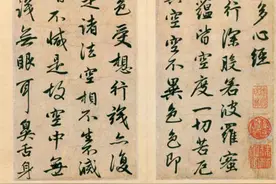 多心經
行深般若波羅蜜
蘊皆空度一切苦厄
空空不異色色即
色受想行識亦復
是諸法空相不生滅
不減是故空中無
識無眼耳鼻舌身